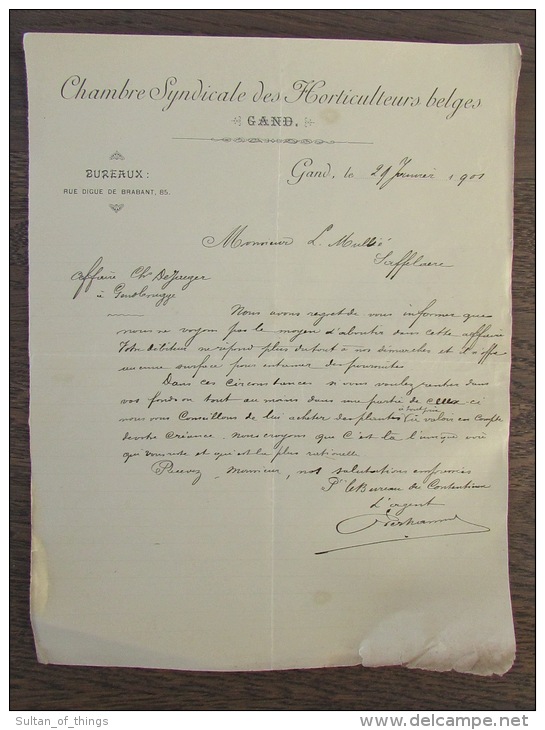 Chambre Syndicale des Horticulteurs belges
GAND.
BUREAUX :
RUE DIGUE DE BRABANT, 85.
Gand, le 29 Janvier 1901
Monsieur L. Mullié
Saffelaere
Affaire Ch. De Jaeger
à Gendbrugge
Nous avons regret de vous informer que
nous ne voyons pas le moyen d'aboutir dans cette affaire
Votre débiteur ne répond plus du tout à nos démarches et il n'offre
aucune surface pour entamer des poursuites
Dans ces circonstances si vous voulez rentrer dans
vos fonds ou tout au moins dans une partie de ceux ci
nous vous Conseillons de lui acheter des plantes à valoir en Compte
à tout prix
de votre Créance. Nous croyons que C'est là l'unique voie
qui vous reste et qui est la plus rationelle
Recevez, Monsieur, nos salutations empressées
Pr le Bureau du Contentieux
L'agent
Sultan_of_things
www.delcampe.net